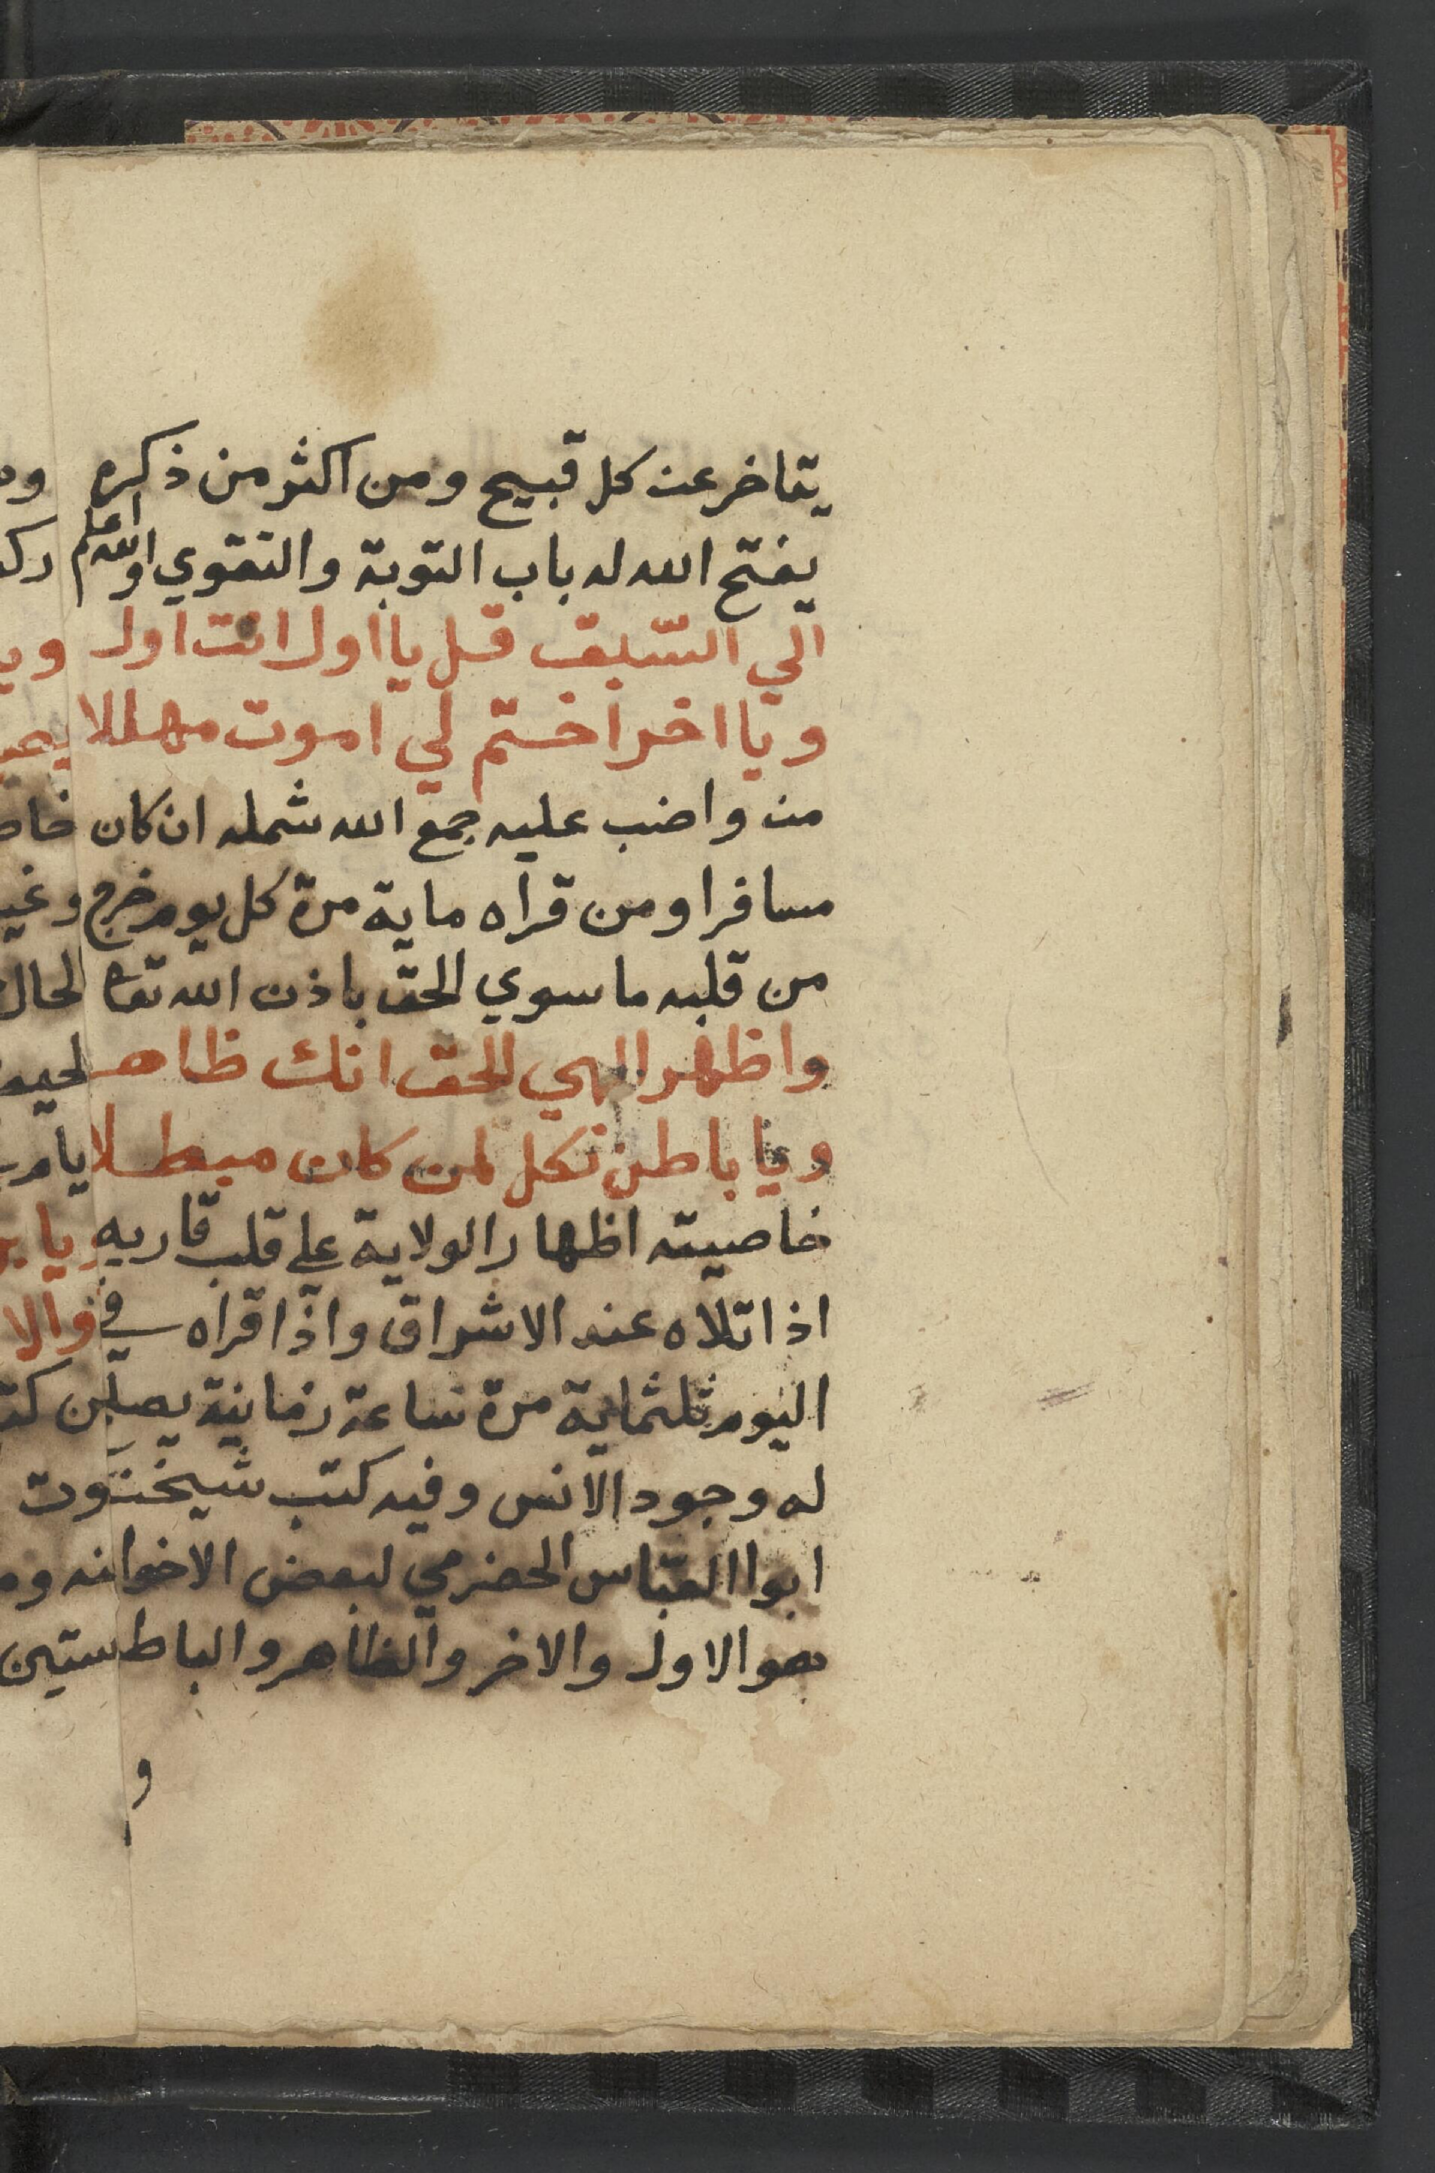 يتاخر عن كل قبيح ومن اكثر من ذكره
يفتح الله له باب التوبة والتقوي والله اعلم
الي السبق قل يا اول انت اول
ويا اخر اختم لي اموت مهللا
من واضب عليه جمع الله شمله ان كان
مسافرا ومن قراه ماية مرة كل يوم خرج
من قلبه ما سوي الحق باذن الله تعا
واظهر الهي الحق انك ظاهر
ويا باطن نكل لمن كان مبطلا
خاصيته اظهار الولاية علي قلب قاريه
اذا تلاه عند الاشراق واذا قراه في
اليوم ثلثماية مرة ساعة زمانية يصل
له وجود الانس وفيه كتب شيخنا
ابوا العباس الحضرمي لبعض الاخوانه
هو الاول والاخر والظاهر والباط